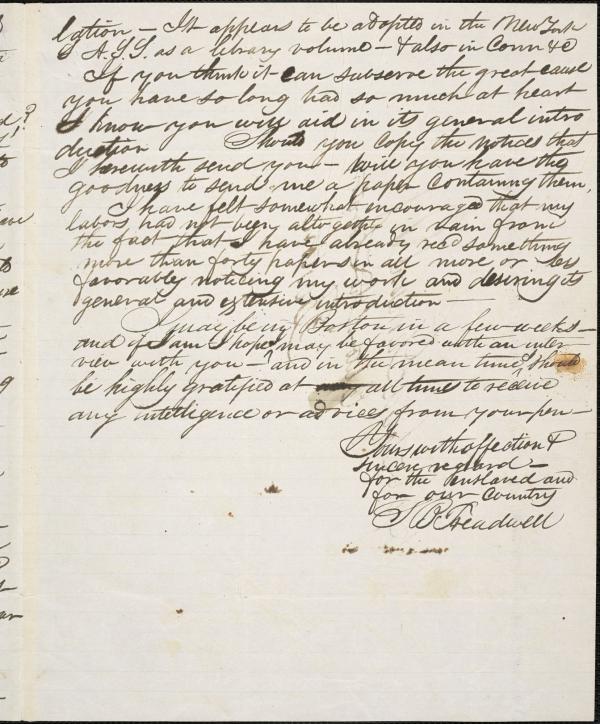 lation – It appears to be adopted in the New York
A.S.S. as a library volume – & also in Conn &c
If you think it can subserve the great cause
you have so long had so much at heart
I know you will aid in its general intro
duction Should you copy the notices that
I herewith send you – will you have the
goodness to send me a paper containing them,
I have felt somewhat encouraged that my
labors had not been altogether in vain from
the fact that I have already recd something
more than forty papers in all more or less
favorably noticing my work and desiring its
general and extensive introduction –
I may be in Boston in a few weeks –
and if I am I hope I may be favored with an inter
view with you – and in the mean time, should
be highly gratified at all times to receive
any intelligence or advices from your pen –
Yours with affection &
sincere regard –
for the enslaved and
for our country
S B Treadwell